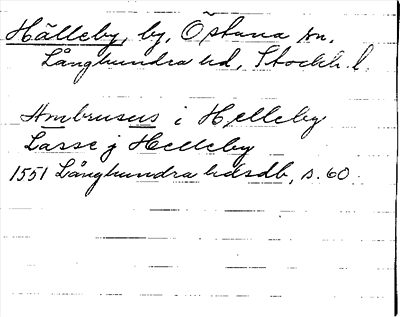 Hälleby, by, Östuna sn,
Långhundra hd, Stockh. l.
Ambrusus i Helleby
Larse j Helleby
1551 Långhundra hdsdb, s. 60